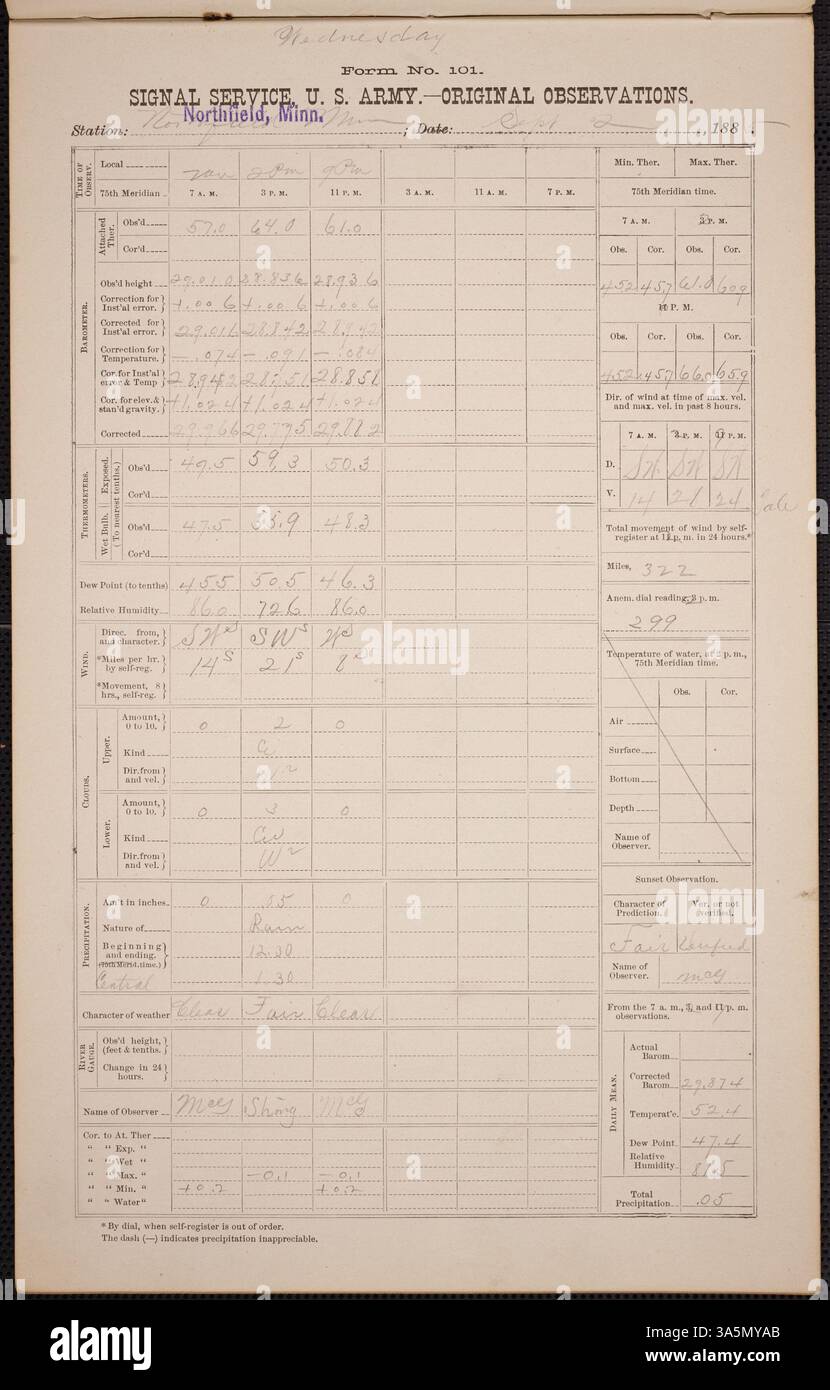 Wednesday
Form No. 101.
SIGNAL SERVICE, U. S. ARMY.—ORIGINAL OBSERVATIONS.
Northfield, Minn.
Station: Northfield Minn ; Date: Sept 2, 1885.
TIME OF OBSERV. Local 7am 2 Pm 9 Pm
75th Meridian 7 A. M. 3 P. M. 11 P. M. 3 A. M. 11 A. M. 7 P. M.
BAROMETER.
Attached Ther. Obs'd 57.0 64.0 61.0
Cor'd
Obs'd height 29.010 28.836 28.936
Correction for Inst'al error. +.006 +.006 +.006
Corrected for Inst'al error. 29.016 28.842 28.942
Correction for Temperature. -.074 -.091 -.084
Cor. for Inst'al error & Temp 28.942 28.751 28.858
Cor. for elev. & stan'd gravity. +1.024 +1.024 +1.024
Corrected 29.966 29.775 29.882
THERMOMETERS. (To nearest tenths.)
Exposed. Obs'd 49.5 59.3 50.3
Cor'd
Wet Bulb. Obs'd 47.5 53.9 48.3
Cor'd
Dew Point (to tenths) 45.5 50.5 46.3
Relative Humidity 86.0 72.6 86.0
WIND.
Direc. from, and character. SW SW W
*Miles per hr. by self-reg. 14 S 21 S 8
*Movement, 8 hrs., self-reg.
CLOUDS.
Upper. Amount, 0 to 10. 0 2 0
Kind
Dir. from and vel.
Lower. Amount, 0 to 10. 0 3 0
Kind Cu
Dir. from and vel. W
PRECIPITATION.
Am't in inches 0 .05 0
Nature of Rain
Beginning and ending. 12.30
(75th Merid. time.)
Central 1.30
Character of weather Clear Fair Clear
RIVER GAUGE. Obs'd height, (feet & tenths.
Change in 24 hours.
Name of Observer McG Strong McG
Cor. to At. Ther
" " Exp. "
" " Wet "
" " Max. " -0.1 -0.1
" " Min. " +0.2 +0.2
" " Water "
* By dial, when self-register is out of order.
The dash (—) indicates precipitation inappreciable.
Min. Ther. Max. Ther.
75th Meridian time.
7 A. M. 3 P. M.
Obs. Cor. Obs. Cor.
45.2 45.7 61.0 60.9
11 P. M.
Obs. Cor. Obs. Cor.
45.2 45.7 66.0 65.9
Dir. of wind at time of max. vel. and max. vel. in past 8 hours.
7 A. M. 3 P. M. 11 P. M.
D. SW SW SW
V. 14 21 24 Gale
Total movement of wind by self-register at 11 p. m. in 24 hours.*
Miles, 322
Anem. dial reading, 3 p. m.
299
Temperature of water, at 3 p. m., 75th Meridian time.
Obs. Cor.
Air
Surface
Bottom
Depth
Name of Observer.
Sunset Observation.
Character of Prediction. Ver. or not verified.
Fair Verified
Name of Observer. McG
From the 7 a. m., 3, and 11 p. m. observations.
DAILY MEAN.
Actual Barom
Corrected Barom 29.874
Temperat'e. 52.4
Dew Point 47.4
Relative Humidity 81.5
Total Precipitation .05
alamy
Image ID: 3A5MYAB
www.alamy.com